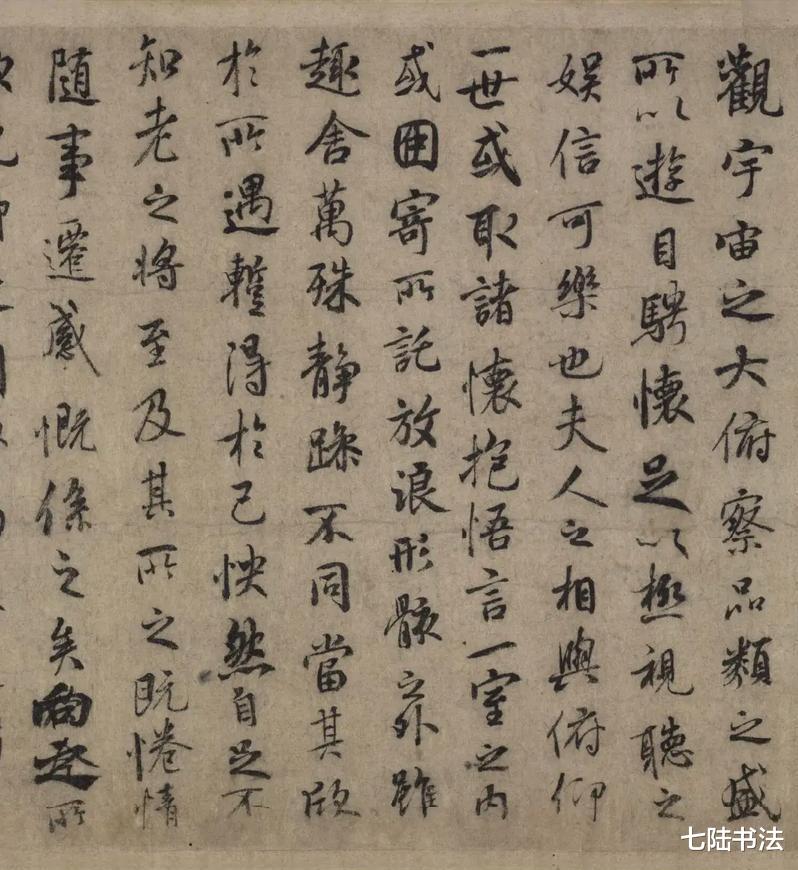 觀宇宙之大俯察品類之盛
所以遊目騁懷足以極視聽之
娱信可樂也夫人之相與俯仰
一世或取諸懷抱悟言一室之内
或因寄所託放浪形骸之外雖
趣舍萬殊静躁不同當其欣
於所遇蹔得於己怏然自足不
知老之將至及其所之既惓情
隨事遷感慨係之矣向之所
七陆书法